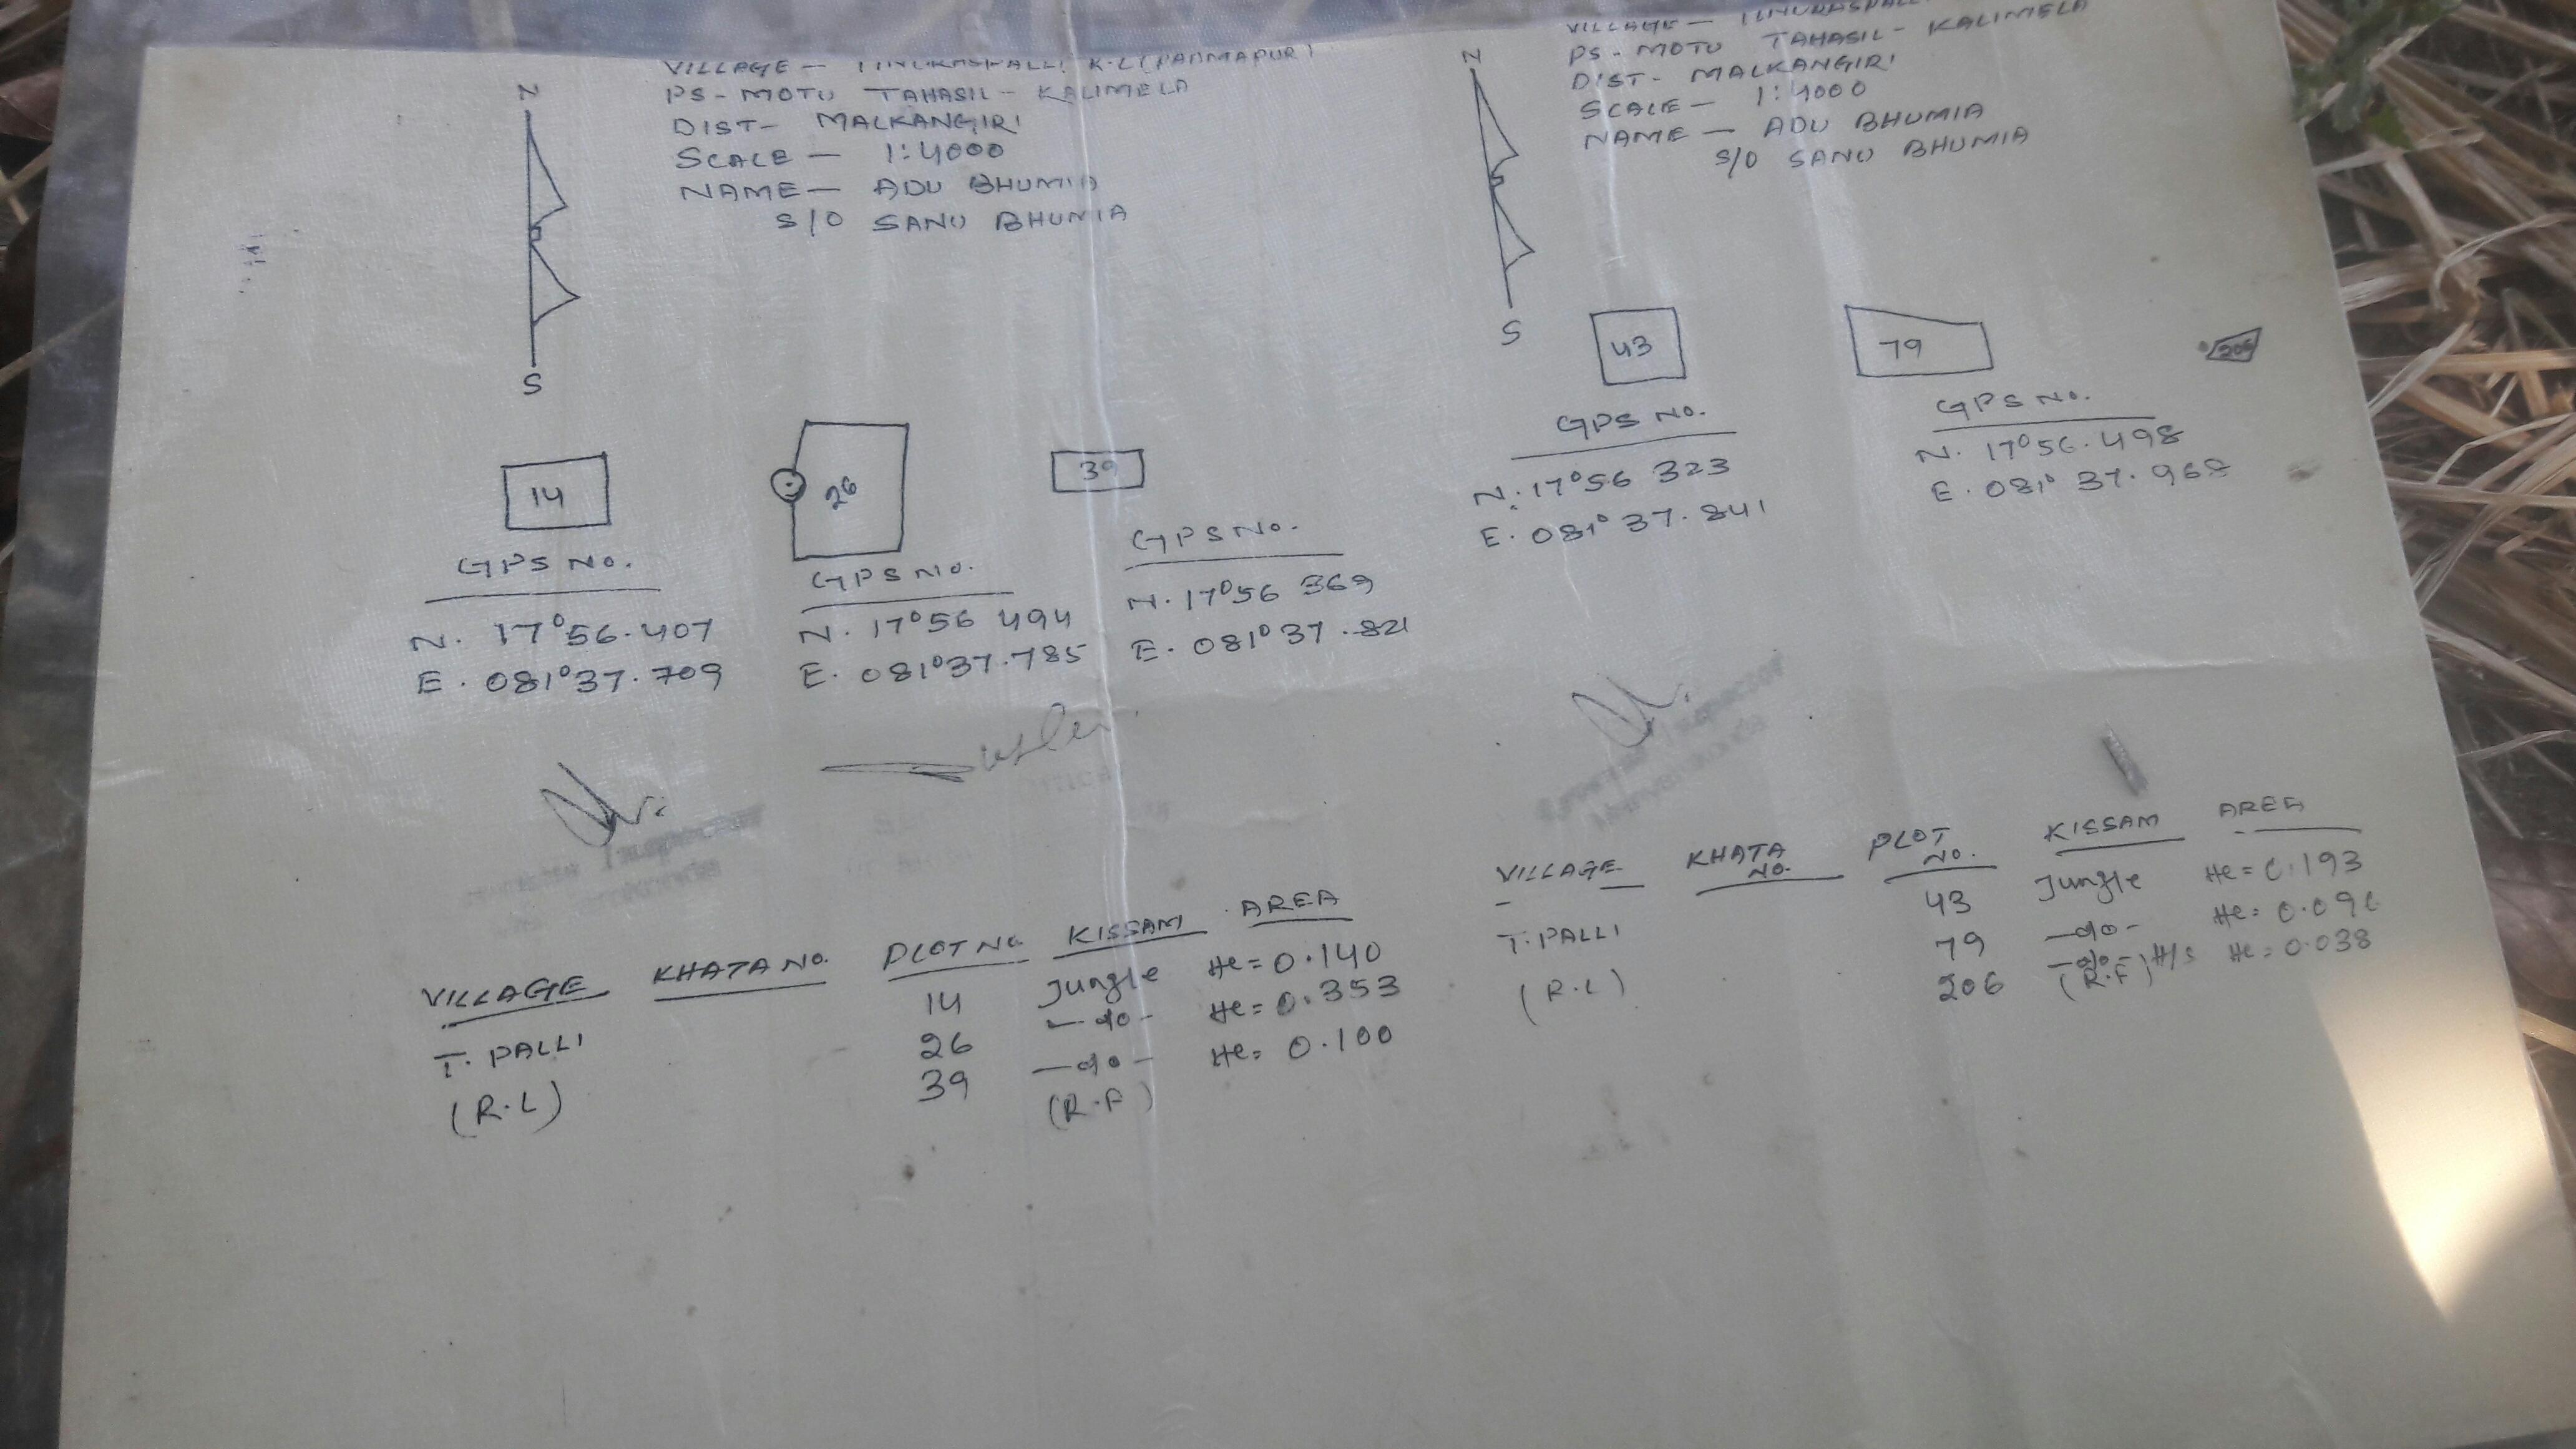 N
S
VILLAGE —
PS - MOTU TAHASIL - KALIMELA
DIST- MALKANGIRI
SCALE — 1:4000
NAME — ADU BHUMIA
S/O SANU BHUMIA
14
GPS NO.
N. 17°56.407
E. 081°37.709
26
GPS NO.
N. 17°56 494
E. 081°37.785
39
GPS NO.
N. 17°56 369
E. 081°37.821
VILLAGE KHATA NO. PLOT NO KISSAM AREA
T. PALLI 14 Jungle He=0.140
(R.L) 26 —do- He=0.353
39 —do— He=0.100
(R.F)
N
S
VILLAGE —
PS - MOTU TAHASIL - KALIMELA
DIST- MALKANGIRI
SCALE — 1:4000
NAME — ADU BHUMIA
S/O SANU BHUMIA
43
GPS NO.
N. 17°56 323
E. 081°37.841
79
GPS NO.
N. 17°56.498
E. 081° 37.968
206
VILLAGE KHATA NO. PLOT NO. KISSAM AREA
T. PALLI 43 Jungle He=0.193
(R.L) 79 —do-
206 —do- H/s He=0.038
(R.F)